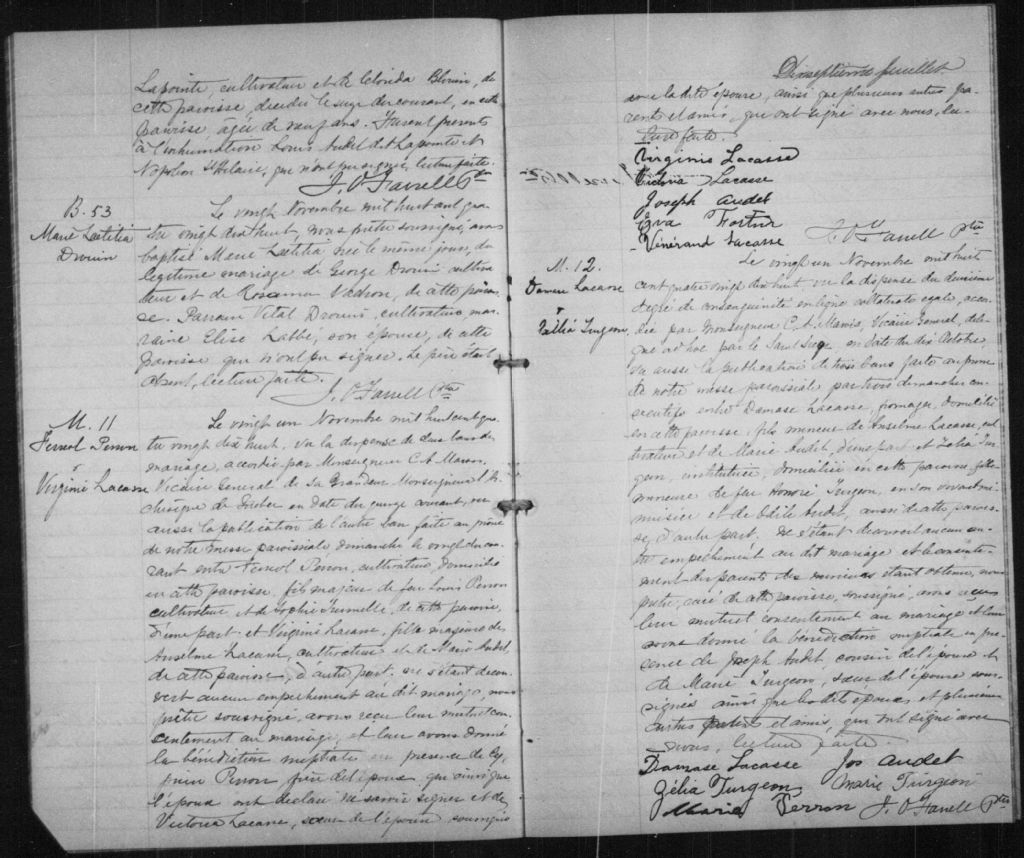 Lapointe, cultivateur et de Clorida Blouin, de
cette paroisse, décédée le seize du courant, en cette
paroisse âgée de neuf ans. Furent présents
à l'inhumation Louis Audet dit Lapointe et
Napoléon St Hilaire, qui n'ont pu signer, lecture faite.
J. O'Farrell Ptre
B. 53
Marie Lætitia
Drouin
Le vingt Novembre mil huit cent qua
tre vingt dix huit, nous prêtre soussigné, avons
baptisé Marie Lætitia née le même jour, du
légitime mariage de George Drouin cultiva
teur et de Rosanna Vachon, de cette parois
se. Parrain Vital Drouin, cultivateur, mar
raine Elise Labbé, son épouse, de cette
paroisse qui n'ont pu signer. Le père étant
absent, lecture faite.
J. O'Farrell Ptre
M. 11
Ferréol Perron
&
Virginie Lacasse
Le vingt un Novembre mil huit cent qua
tre vingt dix huit, vu la dispense de deux bans de
mariage, accordée par Monseigneur C. A. Marois,
Vicaire Général de Sa Grandeur Monseigneur l'Ar
chevêque de Québec en date du quinze courant, vu
aussi la publication de l'autre ban faite au prône
de notre messe paroissiale, dimanche le vingt du cou
rant entre Ferréol Perron, cultivateur, domicilié
en cette paroisse, fils majeur de feu Louis Perron
cultivateur et de Sophie, de cette paroisse,
d'une part et Virginie Lacasse, fille majeure de
Anselme Lacasse, cultivateur et de Marie Audet,
de cette paroisse, d'autre part. Ne s'étant décou
vert aucun empêchement au dit mariage, nous
prêtre soussigné, avons reçu leur mutuel con
sentement au mariage, et leur avons donné
la bénédiction nuptiale en présence de Cy
prien Perron frère de l'époux qui ainsi que
l'époux ont déclaré ne savoir signer et de
Victoria Lacasse, sœur de l'épouse soussignée
Dixseptième feuillet.
avec la dite épouse, ainsi que plusieurs autres pa
rents et amis, qui ont signé avec nous, lec
ture faite.
Virginie Lacasse
Victoria Lacasse
Joseph Audet
Eva Fortier
Vénérand Lacasse
J. O'Farell Ptre
M. 12.
Damase Lacasse
&
Zélia Turgeon
Le vingt un Novembre mil huit
cent quatre vingt dix huit vu la dispense du deuxième
degré de consanguinité en ligne collatérale égale, accor
dée par Monseigneur C. A. Marois, Vicaire Général, délé
gué ad hoc par le Saint Siège en date du dix Octobre,
vu aussi la publication de trois bans faite au prône
de notre messe paroissiale par trois dimanches con
sécutifs entre Damase Lacasse, fromager, domicilié
en cette paroisse, fils mineur de Anselme Lacasse, cul
tivateur et de Marie Audet, d'une part et Zélia Tur
geon, institutrice, domiciliée en cette paroisse, fille
mineure de feu Honoré Turgeon, en son vivant me
nuisier et de Odile Audet, aussi de cette parois
se, d'autre part. Ne s'étant découvert aucun au
tre empêchement au dit mariage et le consente
ment des parents des mineurs étant obtenu, nous
prêtre, curé de cette paroisse, soussigné, avons reçu
leur mutuel consentement au mariage et leur
avons donné la bénédiction nuptiale en pré
sence de Joseph Audet, cousin de l'époux et
de Marie Turgeon, sœur de l'épouse sous
signés ainsi que les dits époux, et plusieurs
autres parents et amis, qui ont signé avec
nous, lecture faite.
Damase Lacasse Jos Audet
Zélia Turgeon Marie Turgeon
Maria Perron J. O'Farell Ptre